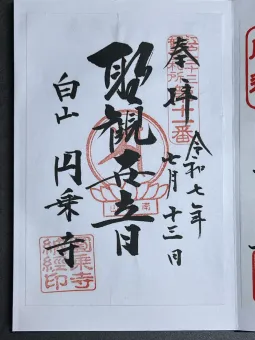 奉拝
令和七年
七月十三日
聖観世音
白山
円乗寺
十一番
円乗寺
納経印